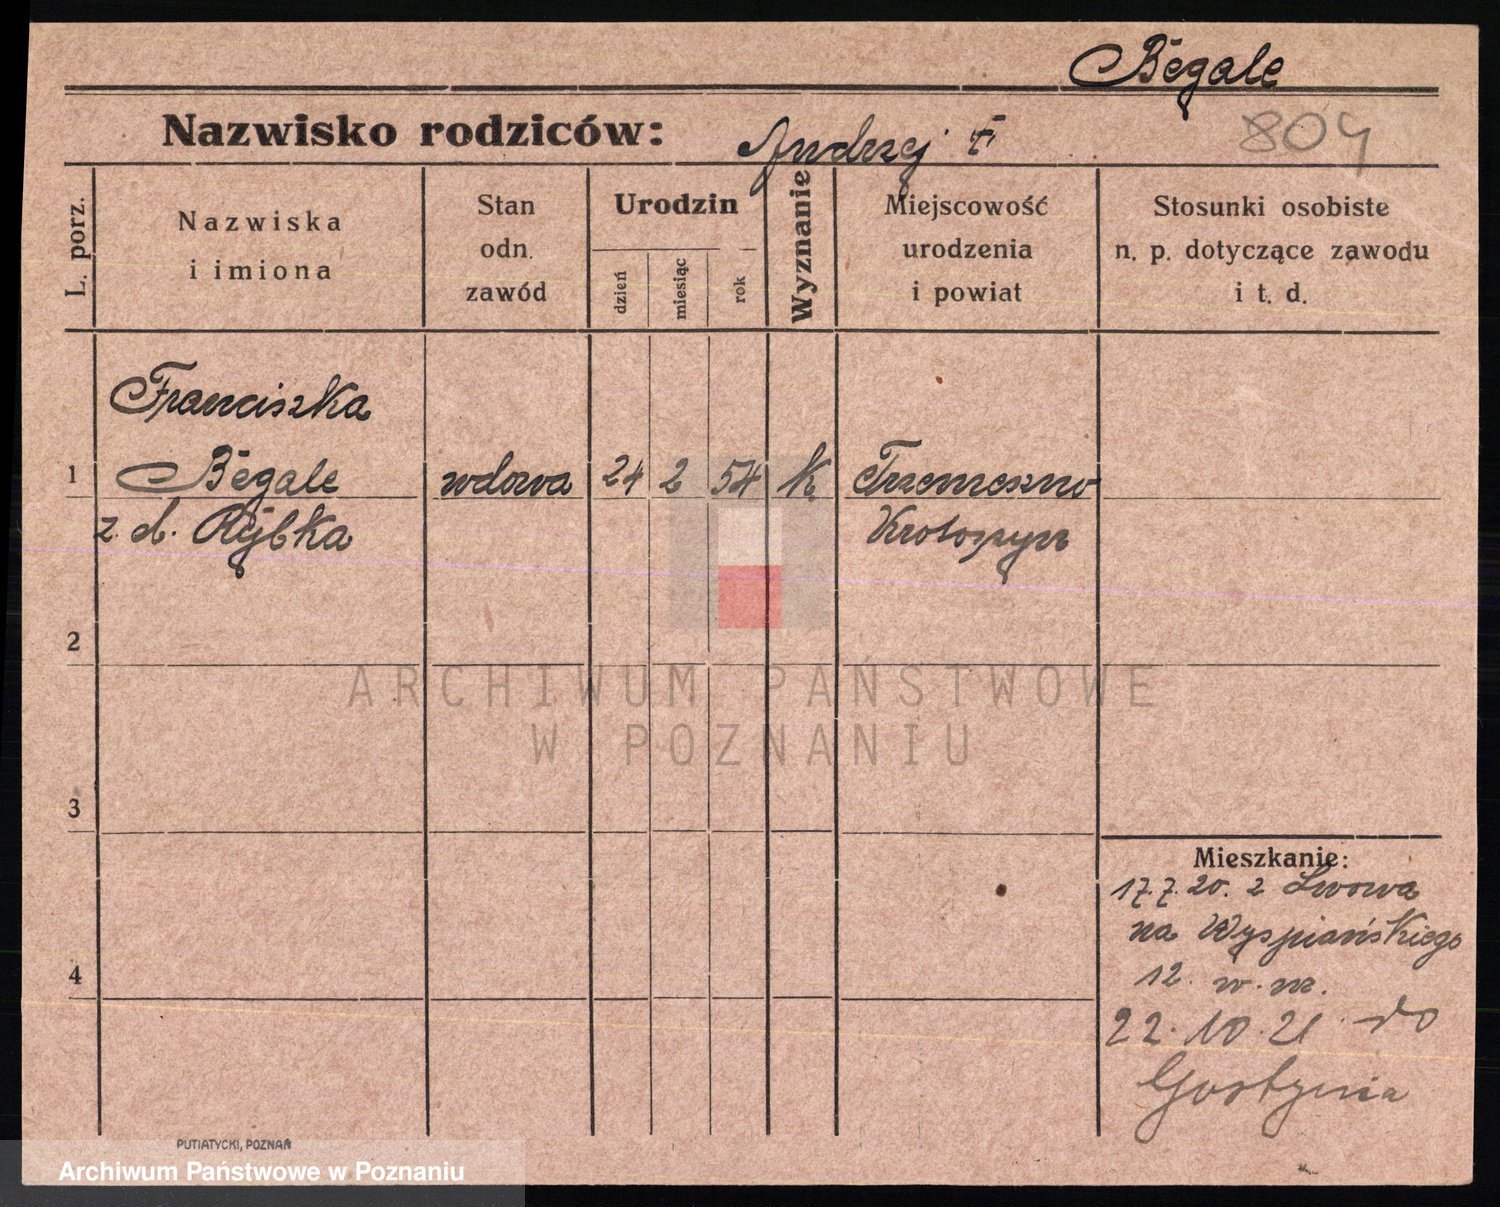 Bēgale
Nazwisko rodziców: Andrzej F
804
L. porz.
Nazwiska
i imiona
Stan
odn.
zawód
Urodzin
dzień
miesiąc
rok
Wyznanie
Miejscowość
urodzenia
i powiat
Stosunki osobiste
n. p. dotyczące zawodu
i t. d.
Franciszka
1 Bēgale wdowa 24 2 54 k. Trzemeszno
z d. Rybka Krotoszyn
2
ARCHIWUM PAŃSTWOWE
W POZNANIU
3
Mieszkanie:
17.7.20. z Lwowa
na Wyspiańskiego
12. w. nr.
4
22.10.21. do
Gostynia
PUTIATYCKI, POZNAŃ
Archiwum Państwowe w Poznaniu